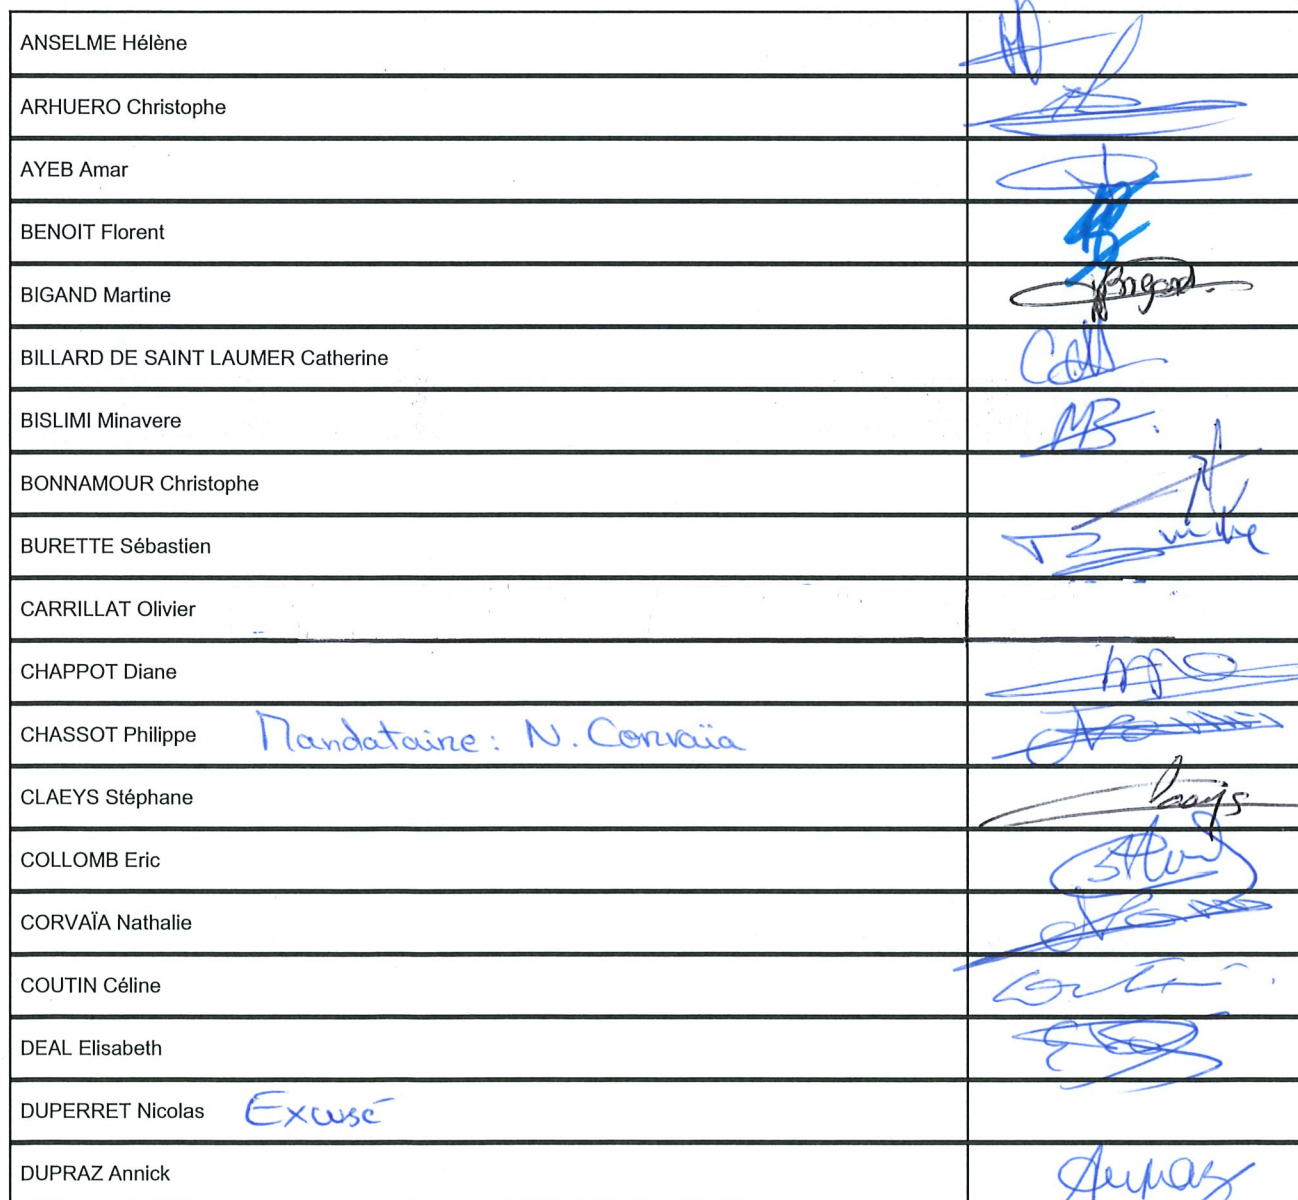 ANSELME Hélène
ARHUERO Christophe
AYEB Amar
BENOIT Florent
BIGAND Martine
BILLARD DE SAINT LAUMER Catherine
BISLIMI Minavere
MB
BONNAMOUR Christophe
BURETTE Sébastien
CARRILLAT Olivier
CHAPPOT Diane
CHASSOT Philippe Mandataire : N. Corvaïa
CLAEYS Stéphane
COLLOMB Eric
CORVAÏA Nathalie
COUTIN Céline
DEAL Elisabeth
DUPERRET Nicolas Excusé
DUPRAZ Annick